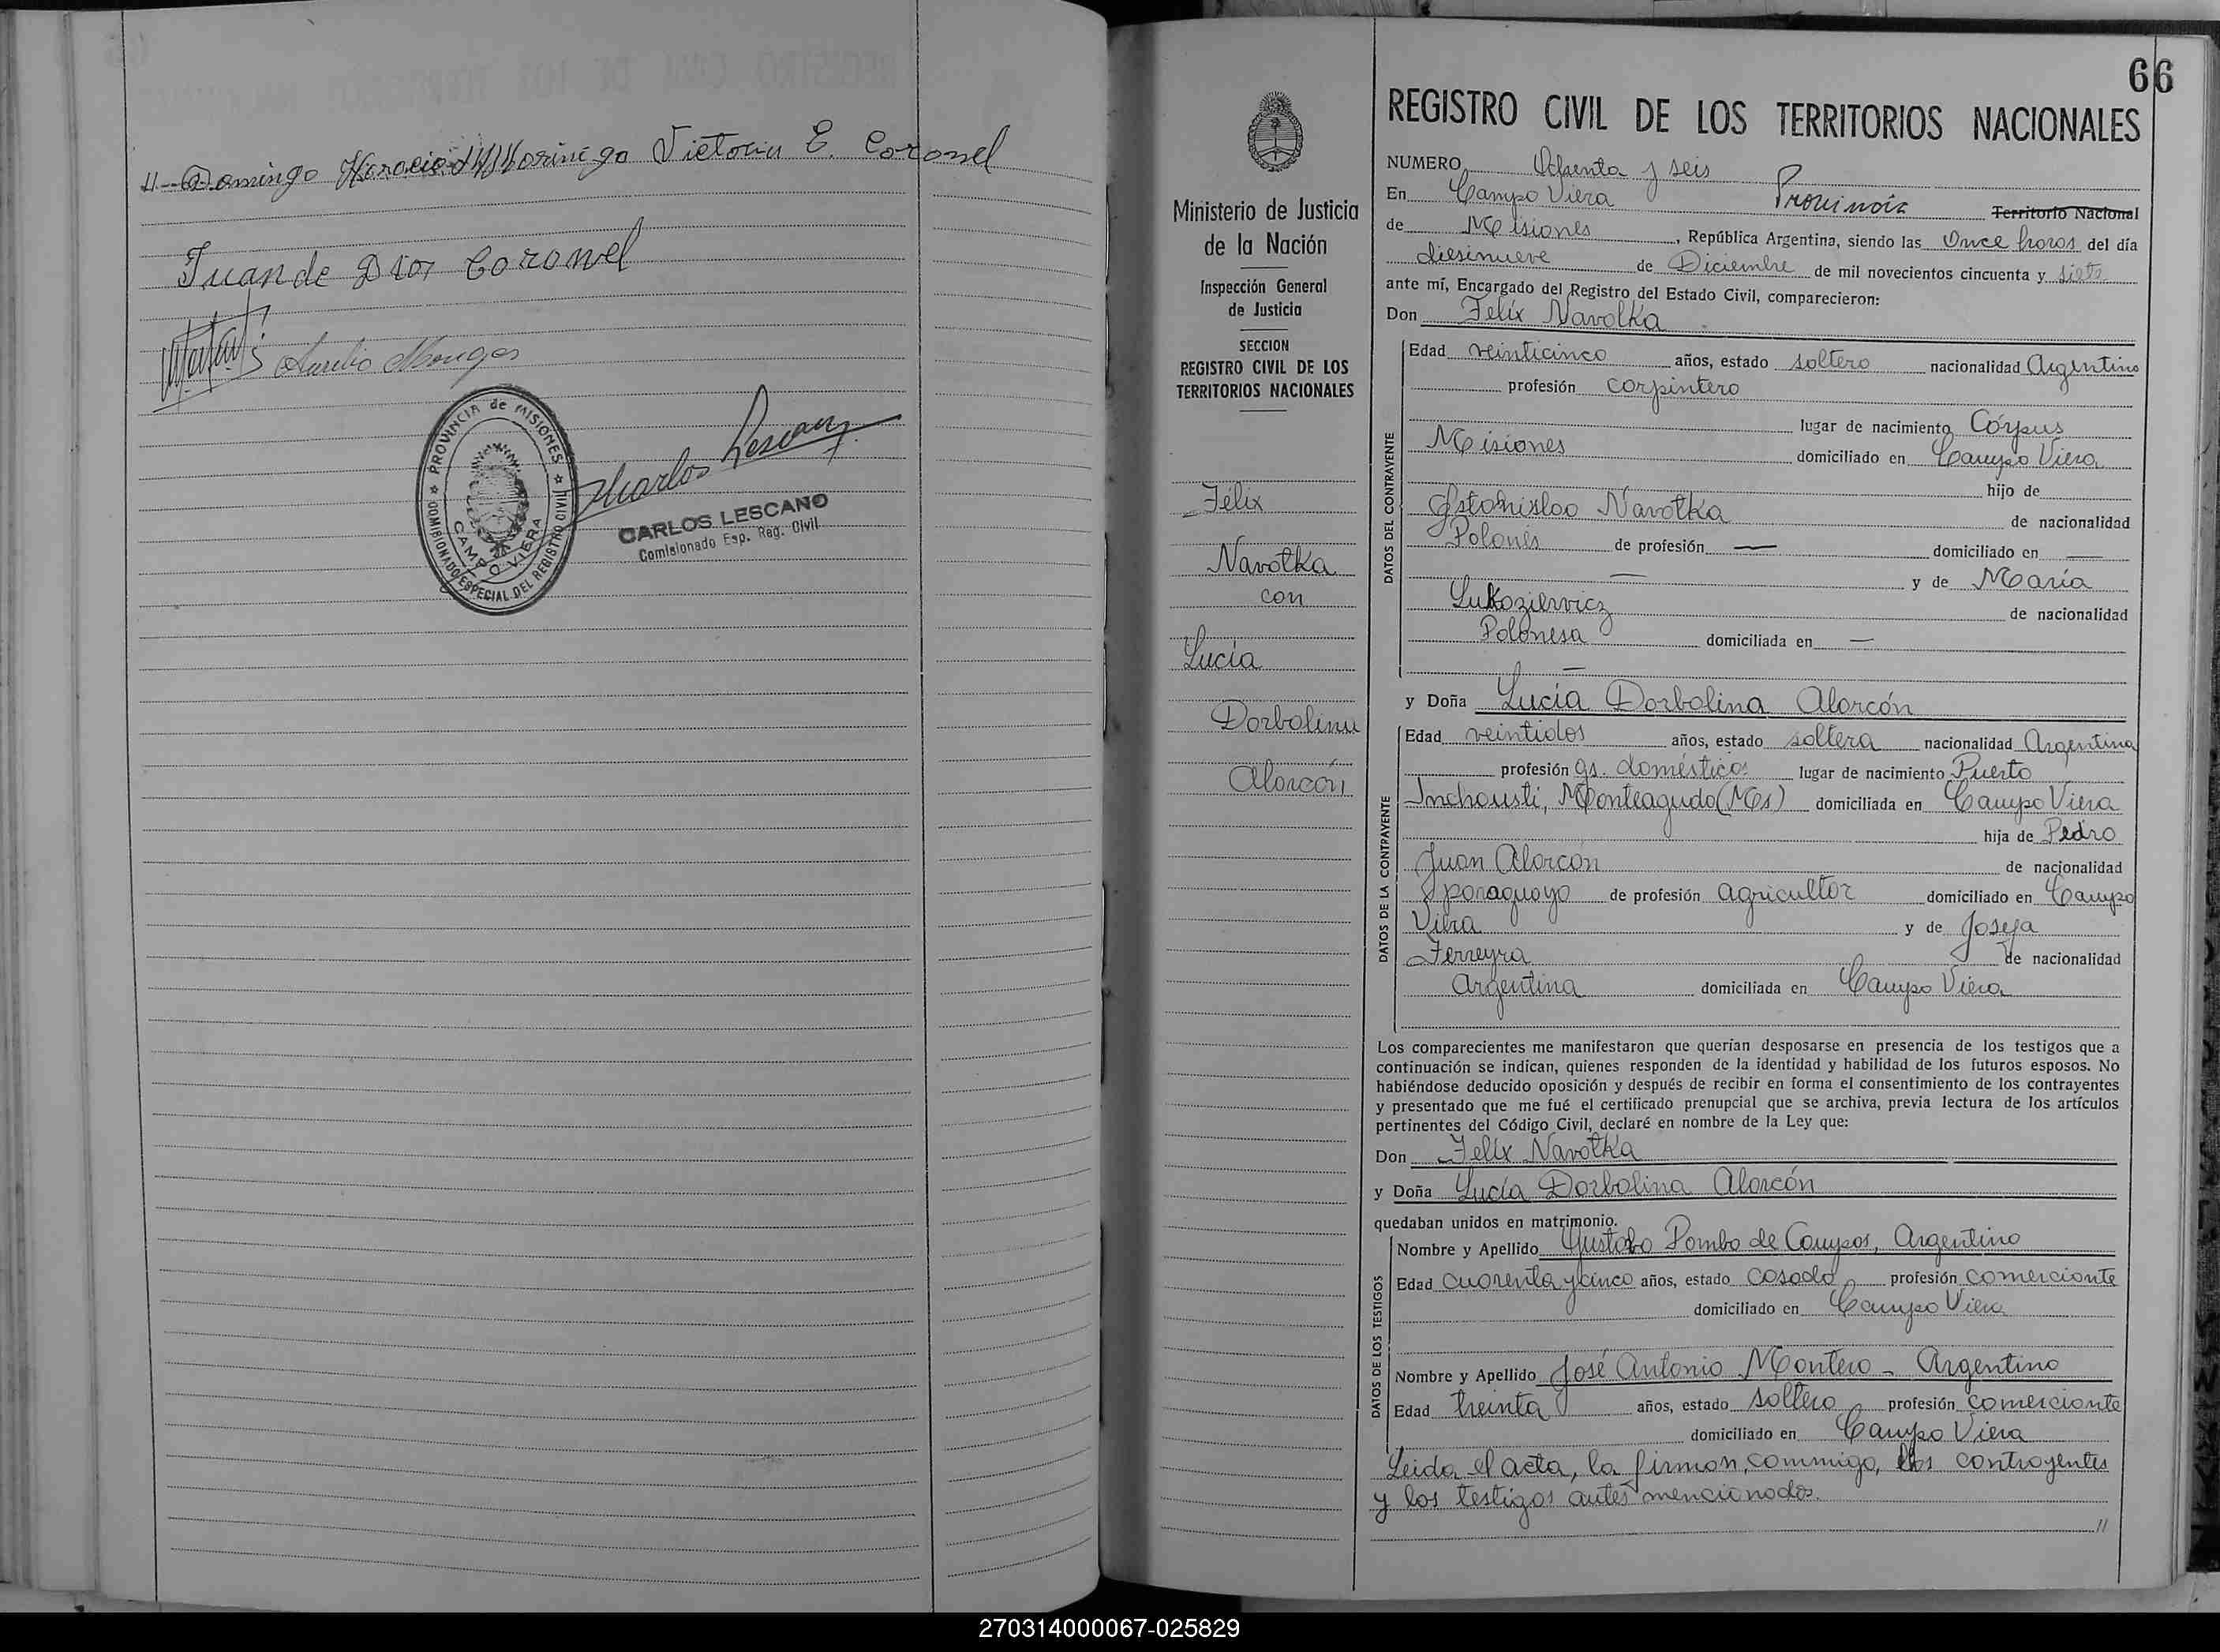 11--Domingo Horacio Moriñigo Victoria E. Coronel
Juan de Dios Coronel
Aurelio Monges
PROVINCIA de MISIONES
COMISIONADO ESPECIAL DEL REGISTRO CIVIL
CAMPO VIERA
Carlos Lescano
CARLOS LESCANO
Comisionado Esp. Reg. Civil
Ministerio de Justicia
de la Nación
Inspección General
de Justicia
SECCION
REGISTRO CIVIL DE LOS
TERRITORIOS NACIONALES
Félix
Navotka
con
Lucía
Dorbolina
Alarcón
66
REGISTRO CIVIL DE LOS TERRITORIOS NACIONALES
NUMERO Ochenta y seis
En Campo Viera Provincia Territorio Nacional
de Misiones, República Argentina, siendo las Once horas del día
diesinueve de Diciembre de mil novecientos cincuenta y siete
ante mí, Encargado del Registro del Estado Civil, comparecieron:
Don Felix Navotka
DATOS DEL CONTRAYENTE
Edad veinticinco años, estado soltero nacionalidad Argentino
profesión carpintero
lugar de nacimiento Córpus
Misiones domiciliado en Campo Viera
hijo de
Estanislao Navotka de nacionalidad
Polonés de profesión — domiciliado en —
— y de María
Lukoziewicz de nacionalidad
Polonesa domiciliada en —
—
y Doña Lucía Dorbolina Alarcón
DATOS DE LA CONTRAYENTE
Edad veintidos años, estado soltera nacionalidad Argentina
profesión qs. domésticos lugar de nacimiento Puerto
Inchousti, Monteagudo (Ms) domiciliada en Campo Viera
hija de Pedro
Juan Alarcón de nacionalidad
paraguayo de profesión agricultor domiciliado en Campo
Viera y de Josefa
Ferreyra de nacionalidad
Argentina domiciliada en Campo Viera
Los comparecientes me manifestaron que querían desposarse en presencia de los testigos que a
continuación se indican, quienes responden de la identidad y habilidad de los futuros esposos. No
habiéndose deducido oposición y después de recibir en forma el consentimiento de los contrayentes
y presentado que me fué el certificado prenupcial que se archiva, previa lectura de los artículos
pertinentes del Código Civil, declaré en nombre de la Ley que:
Don Felix Navotka
y Doña Lucía Dorbolina Alarcón
quedaban unidos en matrimonio.
DATOS DE LOS TESTIGOS
Nombre y Apellido Gustabo Pombo de Campos, Argentino
Edad cuarenta y cinco años, estado casado profesión comerciante
domiciliado en Campo Viera
Nombre y Apellido José Antonio Montero - Argentino
Edad treinta años, estado soltero profesión comerciante
domiciliado en Campo Viera
Leida el acta, la firman, commigo, los contrayentes
y los testigos antes mencionados.
11
270314000067-025829